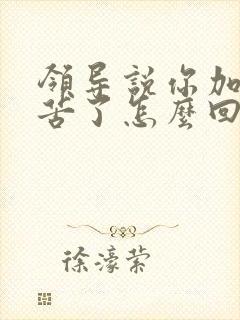 領导説你加
苦了怎麼回
徐濠萦